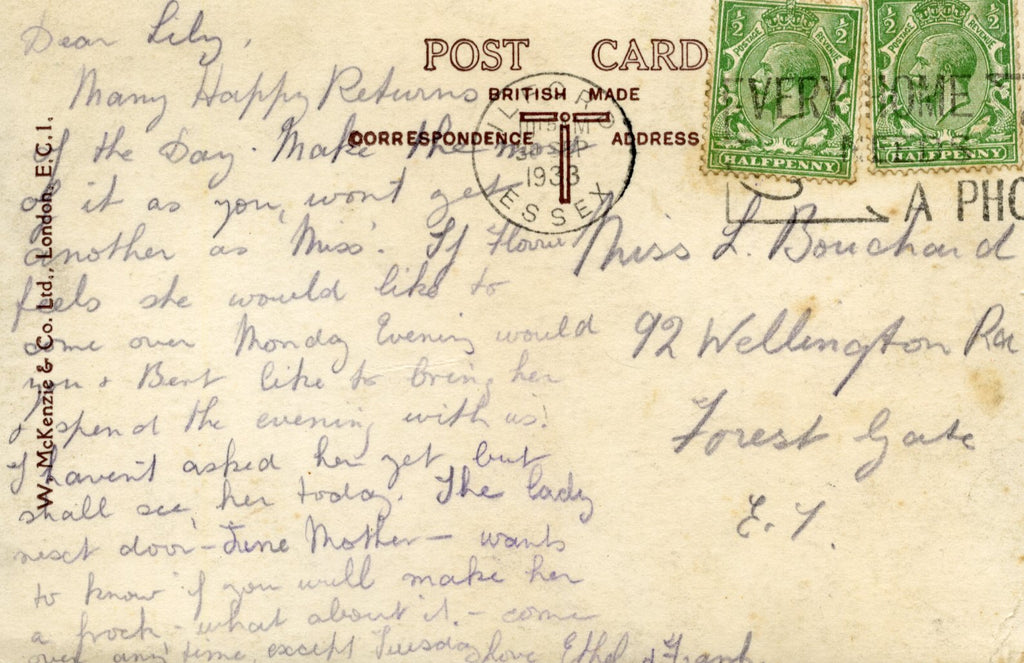 Dear Lily,
Many Happy Returns
of the Day. Make the most
of it as you, wont get
another as 'Miss'. If Florrie
feels she would like to
come over Monday Evening would
you & Bert like to bring her
to spend the evening with us?
I haven't asked her yet but
shall see her today. The lady
next door – June Mother – wants
to know if you will make her
a frock – what about it. – come
over any time except Tuesday
love Ethel & Frank
POST CARD
BRITISH MADE
CORRESPONDENCE ADDRESS
ILFORD
1933
ESSEX
HALFPENNY
HALFPENNY
POSTAGE REVENUE
POSTAGE REVENUE
½ ½
½ ½
VERY OME
A PHO
Miss L. Bouchard
92 Wellington
Forest Gate
E.7.
W. McKenzie & Co. Ltd., London, E.C.1.